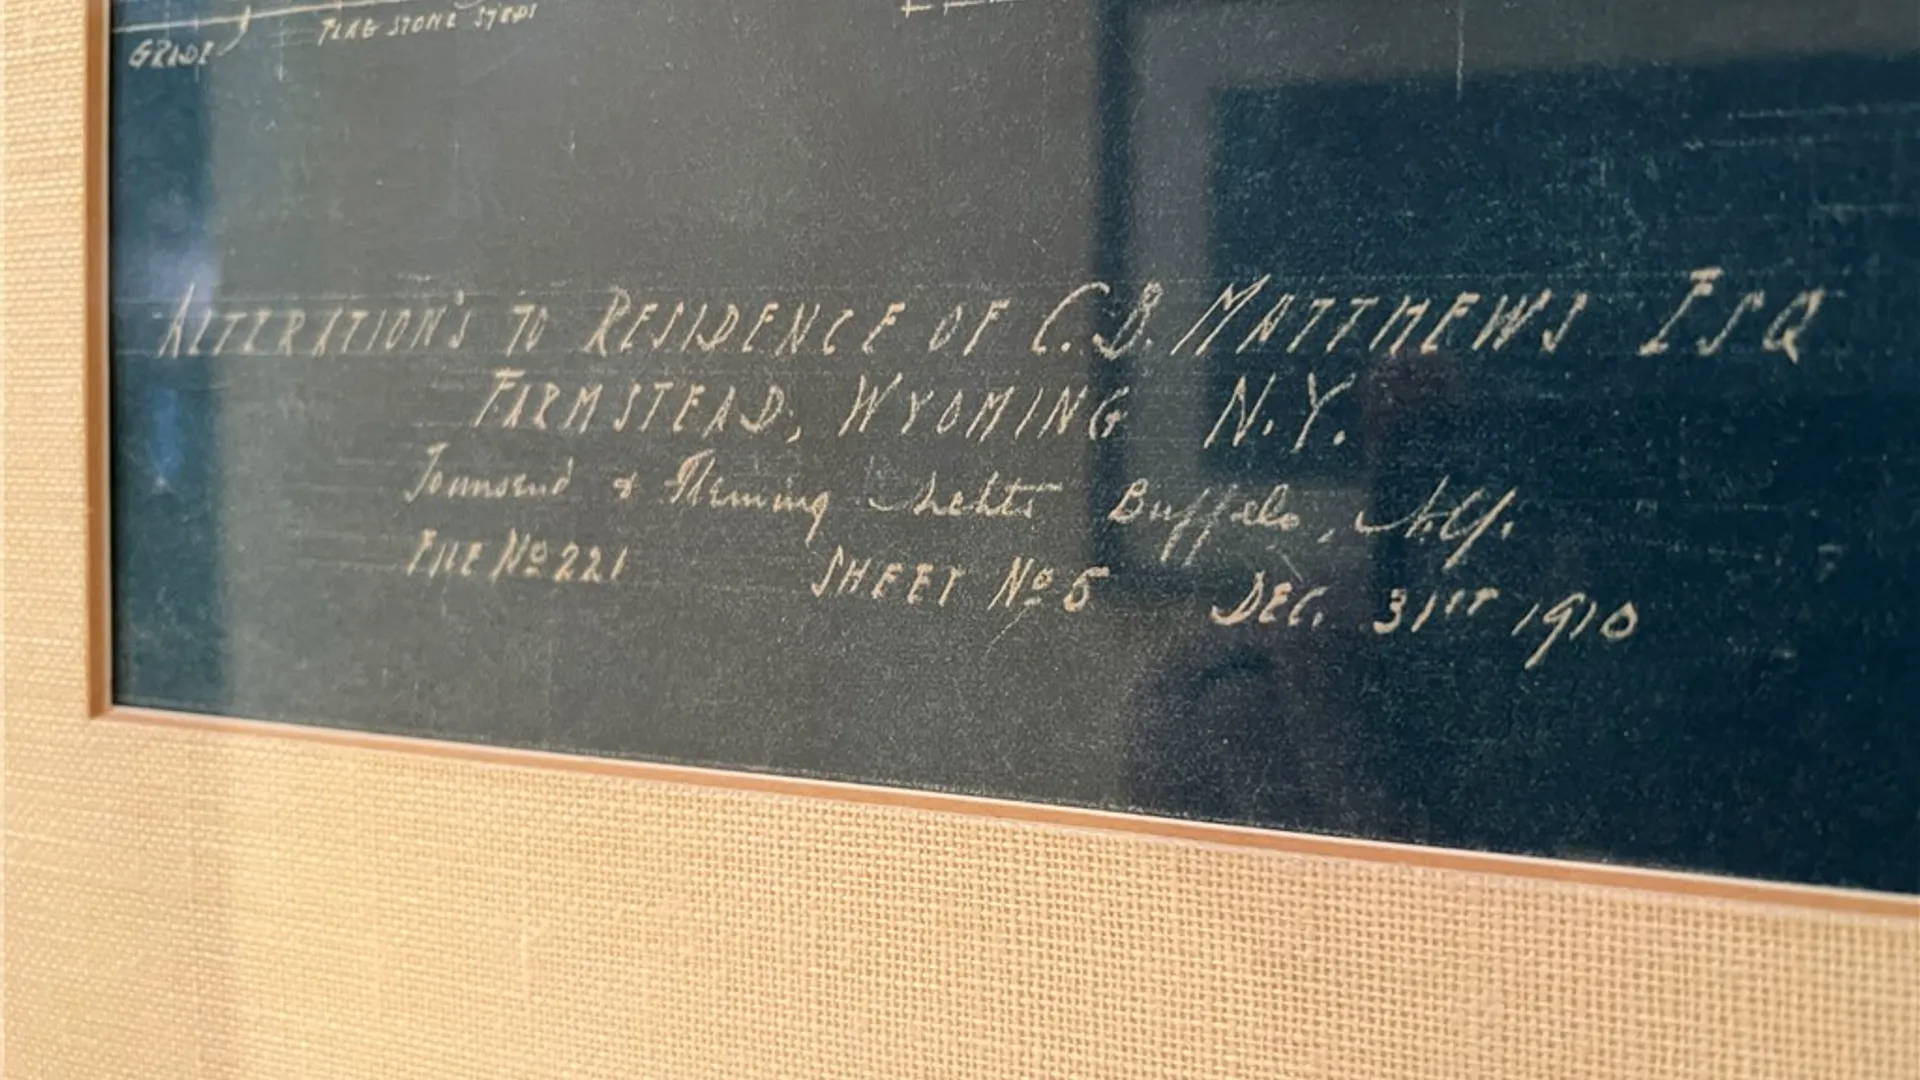 GRADE
FLAG STONE STEPS
ALTERATION'S TO RESIDENCE OF C.B. MATTHEWS ESQ
FARMSTEAD, WYOMING N.Y.
Townsend & Fleming Archts Buffalo, N.Y.
FILE No 221 SHEET No 5 DEC. 31ST 1910